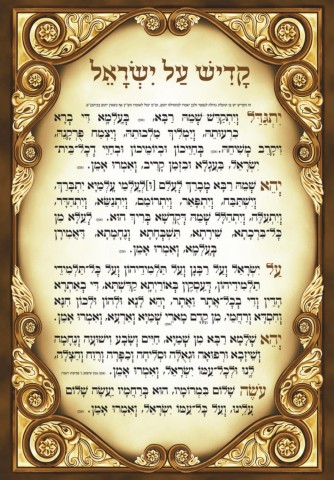 קַדִּישׁ עַל יִשְׂרָאֵל
יִתְגַּדַּל וְיִתְקַדַּשׁ שְׁמֵהּ רַבָּא. בְּעָלְמָא דִּי בְרָא
כִרְעוּתֵהּ, וְיַמְלִיךְ מַלְכוּתֵהּ, וְיַצְמַח פֻּרְקָנֵהּ,
וִיקָרֵב מְשִׁיחֵהּ. בְּחַיֵּיכוֹן וּבְיוֹמֵיכוֹן וּבְחַיֵּי דְכָל־בֵּית־
יִשְׂרָאֵל, בַּעֲגָלָא וּבִזְמַן קָרִיב, וְאִמְרוּ אָמֵן.
יְהֵא שְׁמֵהּ רַבָּא מְבָרַךְ לְעָלַם [וּ]לְעָלְמֵי עָלְמַיָּא יִתְבָּרַךְ,
וְיִשְׁתַּבַּח, וְיִתְפָּאַר, וְיִתְרוֹמַם, וְיִתְנַשֵּׂא, וְיִתְהַדָּר,
וְיִתְעַלֶּה, וְיִתְהַלָּל שְׁמֵהּ דְּקֻדְשָׁא בְּרִיךְ הוּא. לְעֵלָּא מִן
כָּל־בִּרְכָתָא, שִׁירָתָא, תֻּשְׁבְּחָתָא וְנֶחָמָתָא, דַּאֲמִירָן
בְּעָלְמָא, וְאִמְרוּ אָמֵן.
עַל יִשְׂרָאֵל וְעַל רַבָּנָן וְעַל תַּלְמִידֵיהוֹן וְעַל כָּל־תַּלְמִידֵי
תַלְמִידֵיהוֹן, דְּעָסְקִין בְּאוֹרַיְתָא קַדִּשְׁתָּא, דִּי בְאַתְרָא
הָדֵין וְדִי בְכָל־אֲתַר וַאֲתַר, יְהֵא לָנָא וּלְהוֹן וּלְכוֹן חִנָּא
וְחִסְדָּא וְרַחֲמֵי, מִן קֳדָם מָארֵי שְׁמַיָּא וְאַרְעָא, וְאִמְרוּ אָמֵן.
יְהֵא שְׁלָמָא רַבָּא מִן שְׁמַיָּא, חַיִּים וְשָׂבָע וִישׁוּעָה וְנֶחָמָה
וְשֵׁיזָבָא וּרְפוּאָה וּגְאֻלָּה וּסְלִיחָה וְכַפָּרָה וְרֵוַח וְהַצָּלָה,
לָנוּ וּלְכָל־עַמּוֹ יִשְׂרָאֵל, וְאִמְרוּ אָמֵן.
עֹשֶׂה שָׁלוֹם בִּמְרוֹמָיו, הוּא בְּרַחֲמָיו יַעֲשֶׂה שָׁלוֹם
עָלֵינוּ, וְעַל כָּל־עַמּוֹ יִשְׂרָאֵל, וְאִמְרוּ אָמֵן.